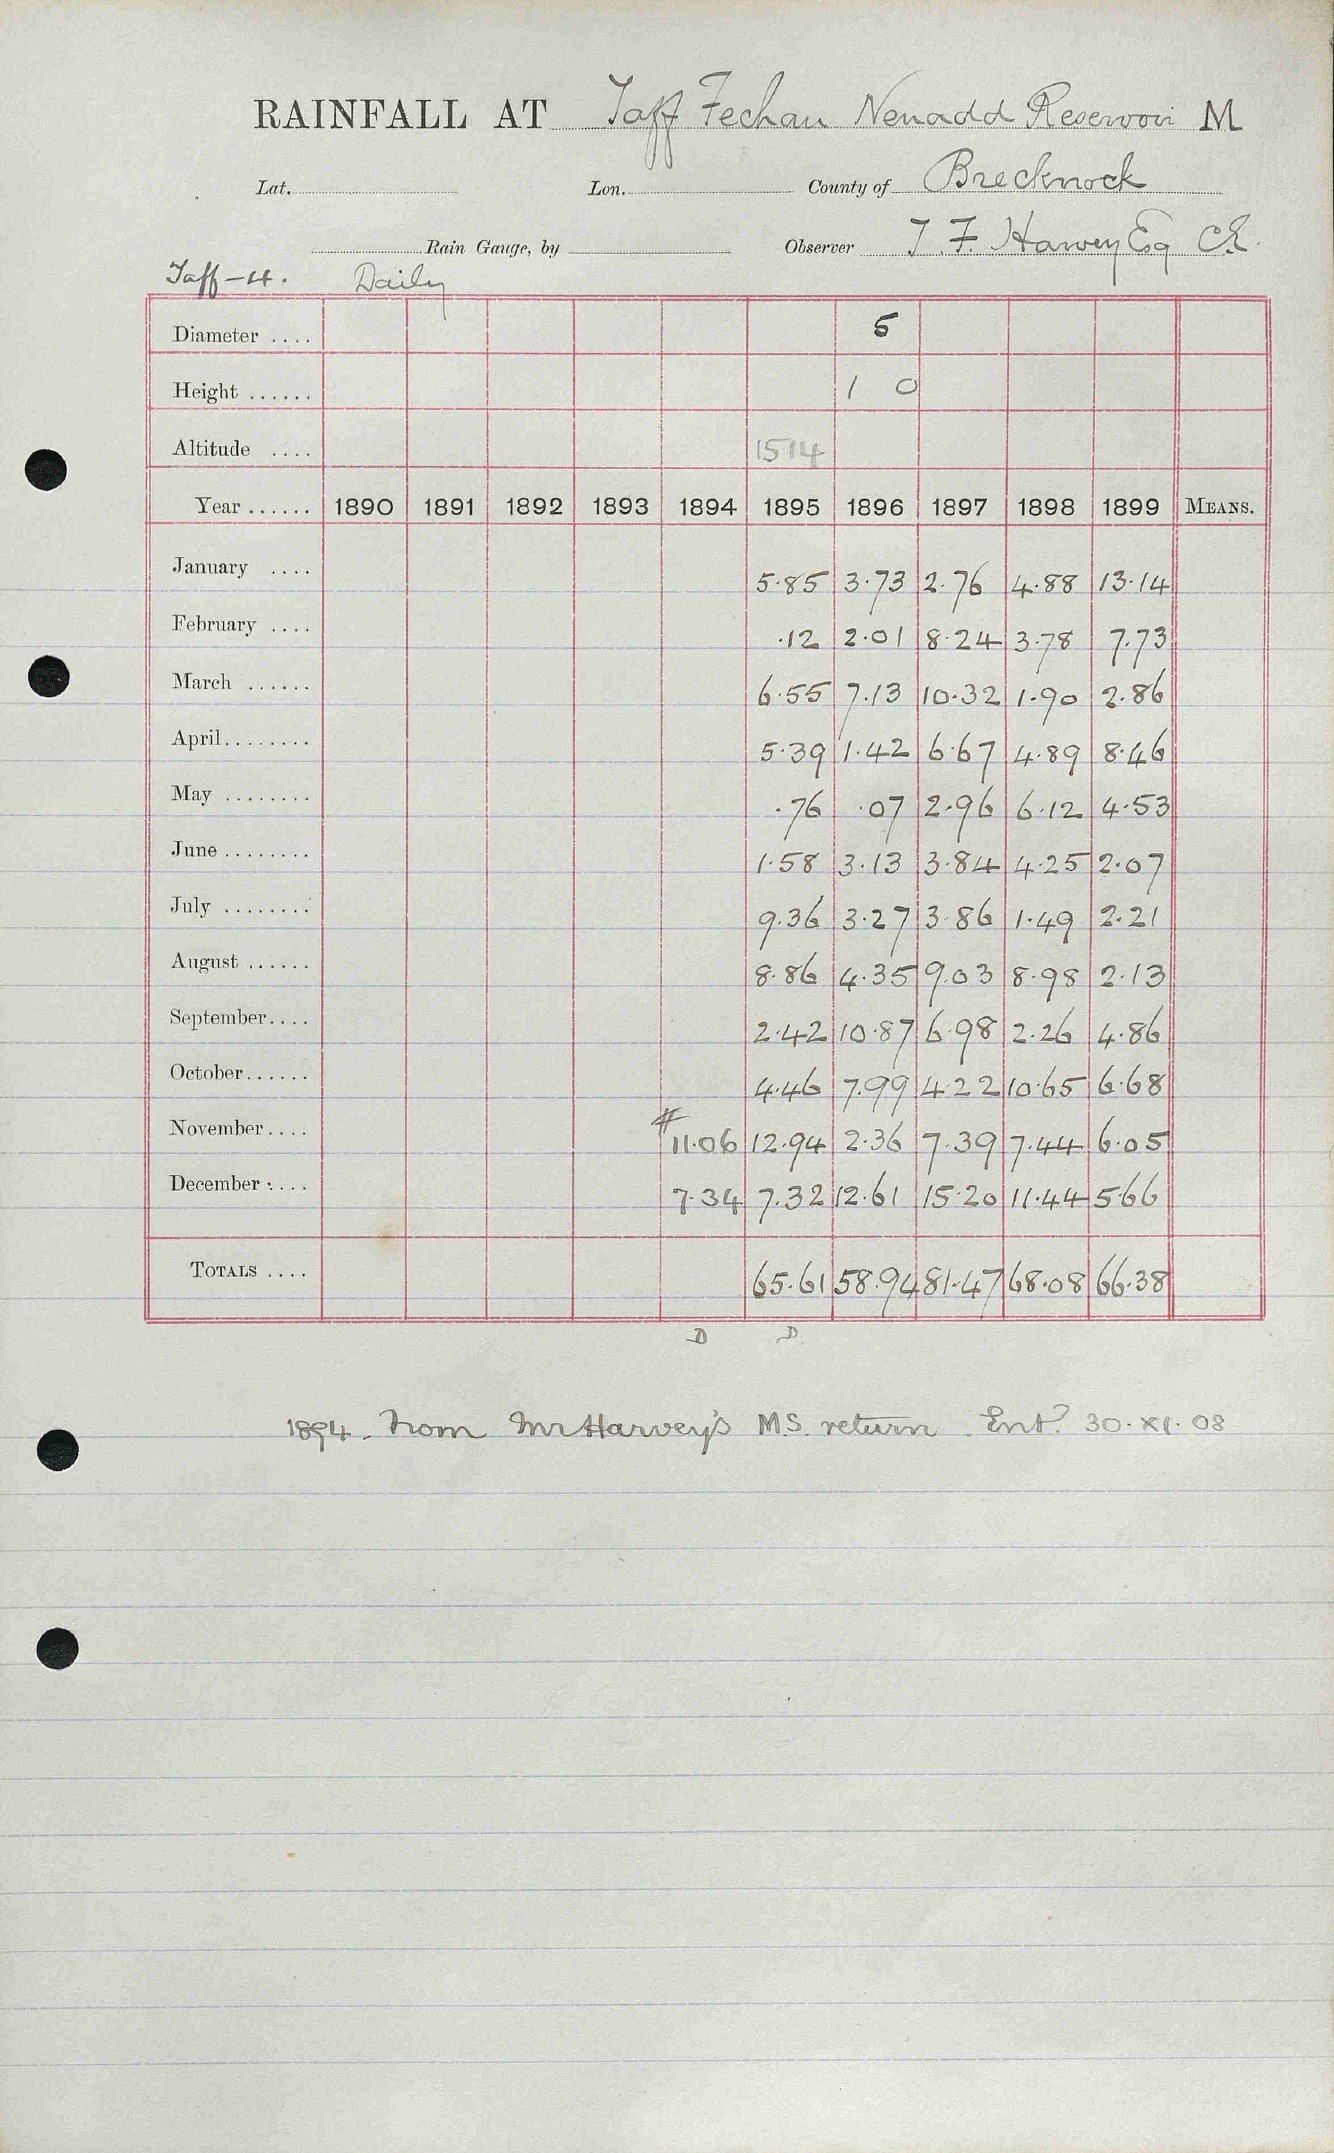 RAINFALL AT Taff Fechan Nenadd Reservoir M
Lat. Lon. County of Brecknock
Rain Gauge, by Observer T. F. Harvey Esq C.E.
Taff-4. Daily
Diameter .... 5
Height ...... 1 0
Altitude .... 1514
Year ...... 1890 1891 1892 1893 1894 1895 1896 1897 1898 1899 MEANS.
January .... 5.85 3.73 2.76 4.88 13.14
February .... .12 2.01 8.24 3.78 7.73
March ...... 6.55 7.13 10.32 1.90 2.86
April........ 5.39 1.42 6.67 4.89 8.46
May ........ .76 .07 2.96 6.12 4.53
June ........ 1.58 3.13 3.84 4.25 2.07
July ........ 9.36 3.27 3.86 1.49 2.21
August ...... 8.86 4.35 9.03 8.98 2.13
September.... 2.42 10.87 6.98 2.26 4.86
October...... 4.46 7.99 4.22 10.65 6.68
November.... # 11.06 12.94 2.36 7.39 7.44 6.05
December .... 7.34 7.32 12.61 15.20 11.44 5.66
TOTALS .... 65.61 58.94 81.47 68.08 66.38
D D
1894. From Mr Harvey's M.S. return. Entd 30.XI.08